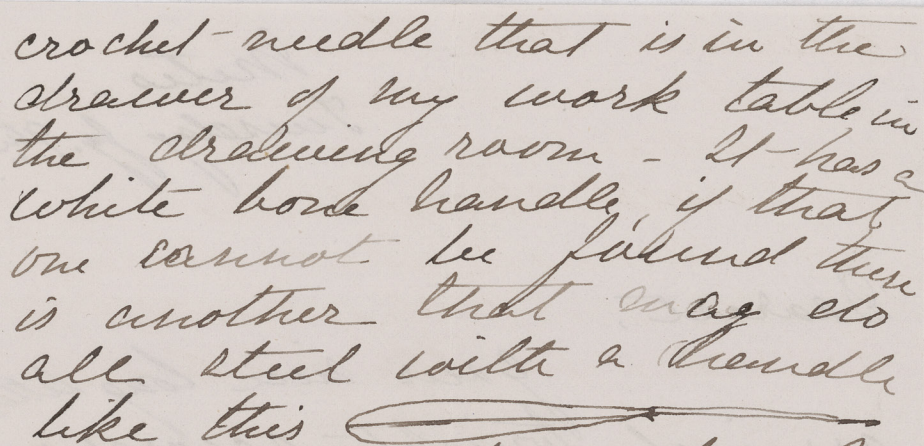 crochet-needle that is in the
drawer of my work table in
the drawing room - It has a
white bone handle, if that
one cannot be found there
is another that may do
all steel with a handle
like this